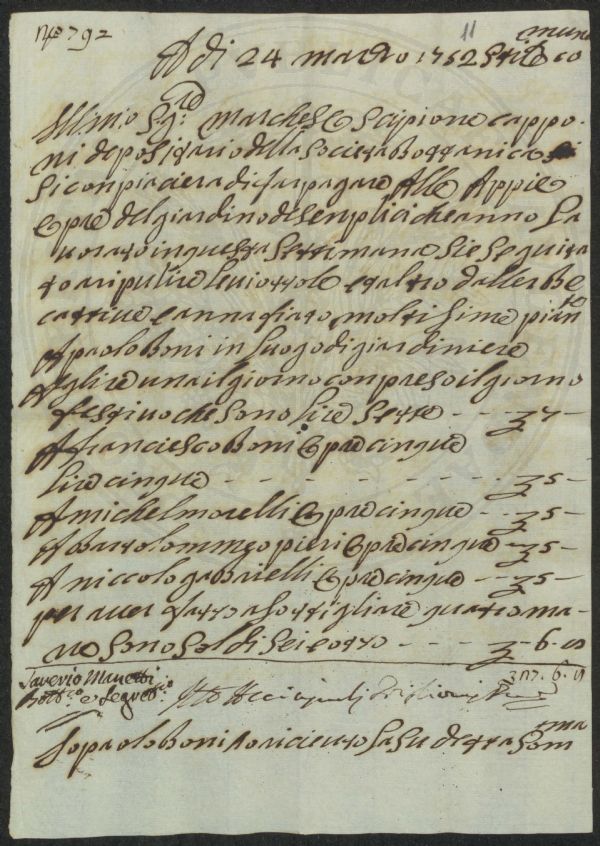 No 792
11
A di 24 marzo 1752 Stile comune
Illmo Sgre marchese Scipione cappo-
ni depositario della Società Bottanica
Si conpiacierà di far pagare alle Appie
Opre del giardino de Senplici che anno La
uorato in questa Settimana Sie Seguita
to a ripulire le uiottole e taltro dallerbe
cattiue e annafiato moltisime piante
A paolo Boni in luogo di giardiniere
A lire una il giorno conpreso il giorno
festiuo che Sono lire Sette - - - 7 -
A Franciesco Boni Opre cinque
lire cinque - - - - - - - 5 -
A michel morelli Opre cinque - - 5 -
A bartolommeo pieri Opre cinque - 5 -
A niccolo gabrielli Opre cinque - - 5 -
per auer fatto asottigliare quatro ma-
re Sono Soldi Sei e otto - - - - - 6. 8
Saverio Manetti
Dottco. e Segretrio.
27. 6. 8
Io paolo Boni o riceuto La Su detta Somma